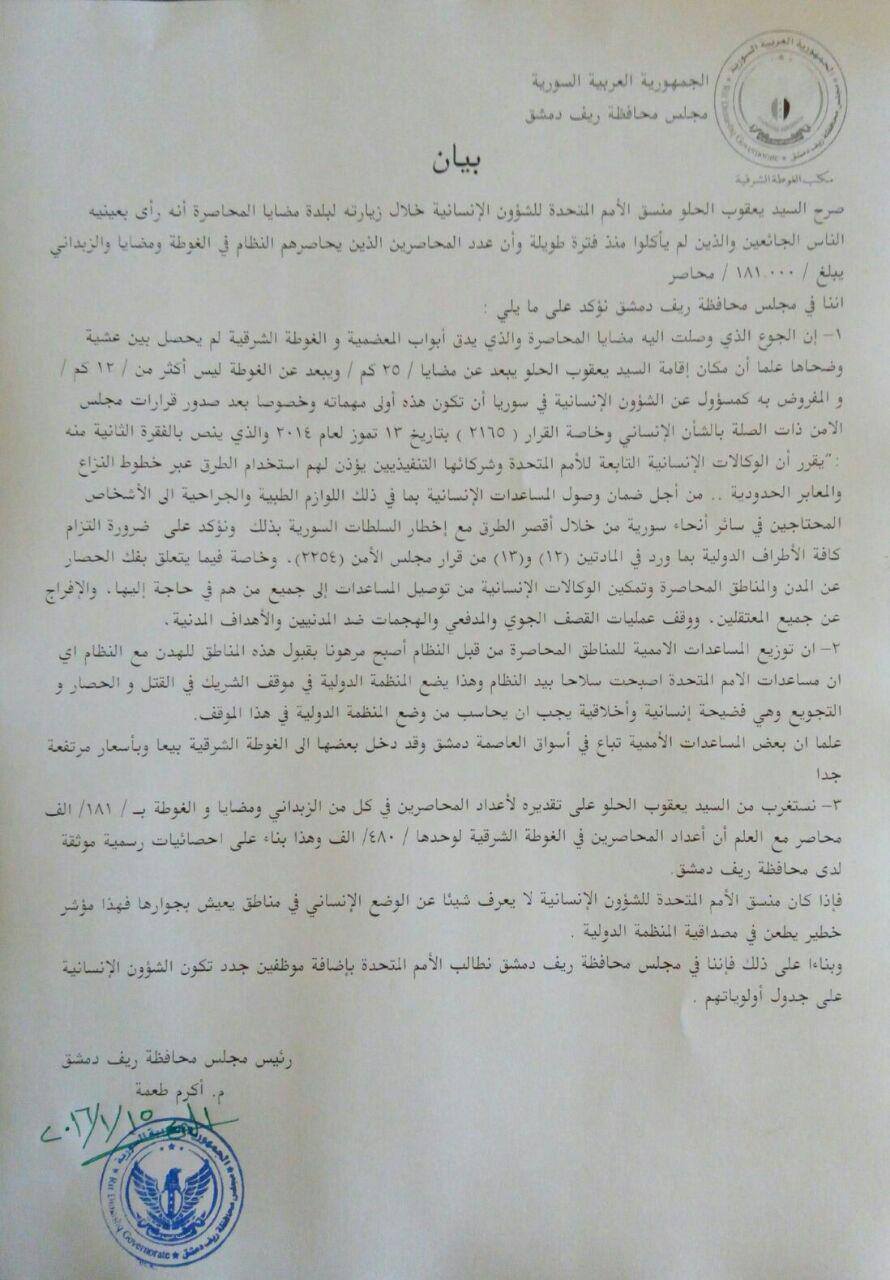 الجمهورية العربية السورية
مجلس محافظة ريف دمشق
مكتب الغوطة الشرقية
بيان
صرح السيد يعقوب الحلو منسق الأمم المتحدة للشؤون الإنسانية خلال زيارته لبلدة مضايا المحاصرة أنه رأى بعينيه
الناس الجائعين والذين لم يأكلوا منذ فترة طويلة وأن عدد المحاصرين الذين يحاصرهم النظام في الغوطة ومضايا والزبداني
يبلغ / ١٨١.٠٠٠ / محاصر
اننا في مجلس محافظة ريف دمشق نؤكد على ما يلي :
١- إن الجوع الذي وصلت اليه مضايا المحاصرة والذي يدق أبواب المعضمية و الغوطة الشرقية لم يحصل بين عشية
وضحاها علما أن مكان إقامة السيد يعقوب الحلو يبعد عن مضايا / ٢٥ كم / ويبعد عن الغوطة ليس أكثر من / ١٢ كم /
و المفروض به كمسؤول عن الشؤون الإنسانية في سوريا أن تكون هذه أولى مهماته وخصوصا بعد صدور قرارات مجلس
الامن ذات الصلة بالشأن الإنساني وخاصة القرار ( ٢١٦٥ ) بتاريخ ١٣ تموز لعام ٢٠١٤ والذي ينص بالفقرة الثانية منه
:"يقرر أن الوكالات الإنسانية التابعة للأمم المتحدة وشركائها التنفيذيين يؤذن لهم استخدام الطرق عبر خطوط النزاع
والمعابر الحدودية .. من أجل ضمان وصول المساعدات الإنسانية بما في ذلك اللوازم الطبية والجراحية الى الأشخاص
المحتاجين في سائر أنحاء سورية من خلال أقصر الطرق مع إخطار السلطات السورية بذلك ونؤكد على ضرورة التزام
كافة الأطراف الدولية بما ورد في المادتين (١٢) و(١٣) من قرار مجلس الأمن (٢٢٥٤). وخاصة فيما يتعلق بفك الحصار
عن المدن والمناطق المحاصرة وتمكين الوكالات الإنسانية من توصيل المساعدات إلى جميع من هم في حاجة إليها. والإفراج
عن جميع المعتقلين. ووقف عمليات القصف الجوي والمدفعي والهجمات ضد المدنيين والأهداف المدنية.
٢- ان توزيع المساعدات الاممية للمناطق المحاصرة من قبل النظام أصبح مرهونا بقبول هذه المناطق للهدن مع النظام اي
ان مساعدات الامم المتحدة اصبحت سلاحا بيد النظام وهذا يضع المنظمة الدولية في موقف الشريك في القتل و الحصار و
التجويع وهي فضيحة إنسانية وأخلاقية يجب ان يحاسب من وضع المنظمة الدولية في هذا الموقف.
علما ان بعض المساعدات الأممية تباع في أسواق العاصمة دمشق وقد دخل بعضها الى الغوطة الشرقية بيعا وبأسعار مرتفعة
جدا
٣- نستغرب من السيد يعقوب الحلو على تقديره لأعداد المحاصرين في كل من الزبداني ومضايا و الغوطة بـ / ١٨١/ الف
محاصر مع العلم أن أعداد المحاصرين في الغوطة الشرقية لوحدها / ٤٨٠/ الف وهذا بناء على احصائيات رسمية موثقة
لدى محافظة ريف دمشق.
فإذا كان منسق الأمم المتحدة للشؤون الإنسانية لا يعرف شيئا عن الوضع الإنساني في مناطق يعيش بجوارها فهذا مؤشر
خطير يطعن في مصداقية المنظمة الدولية .
وبناءا على ذلك فإننا في مجلس محافظة ريف دمشق نطالب الأمم المتحدة بإضافة موظفين جدد تكون الشؤون الإنسانية
على جدول أولوياتهم .
رئيس مجلس محافظة ريف دمشق
م. أكرم طعمة
٢٠١٦/١/١٥
الجمهورية العربية السورية
محافظة ريف دمشق
Rif Dimashq Governorate